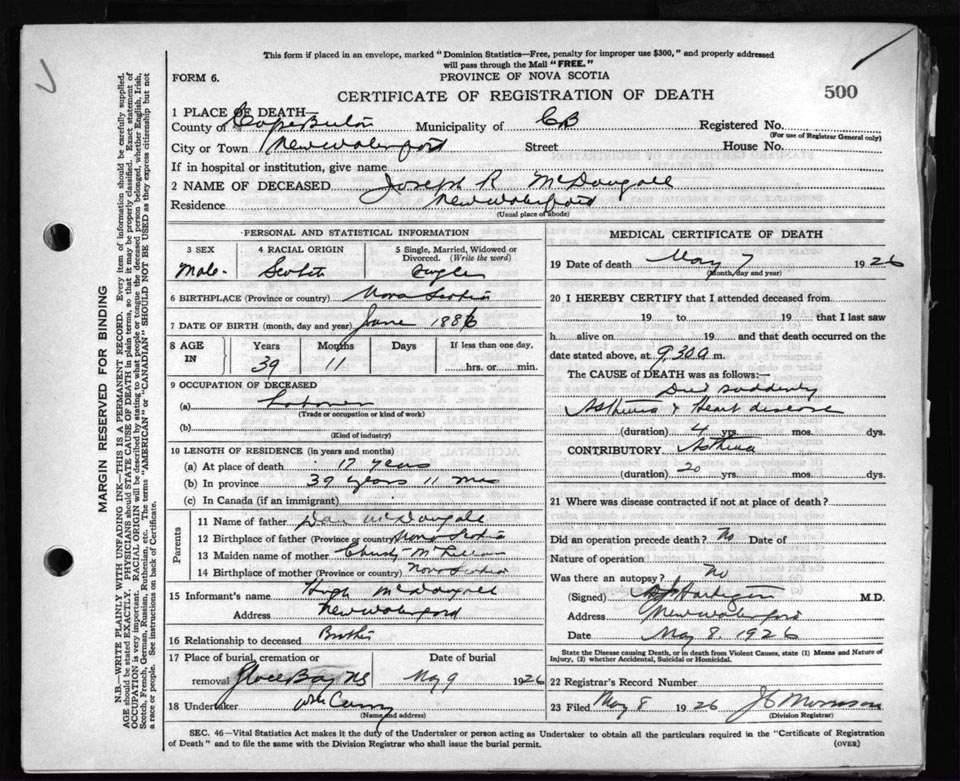 This form if placed in an envelope, marked "Dominion Statistics—Free, penalty for improper use $300," and properly addressed
will pass through the Mail "FREE."
FORM 6.
PROVINCE OF NOVA SCOTIA
CERTIFICATE OF REGISTRATION OF DEATH
500
1 PLACE OF DEATH—
County of Cape Breton Municipality of CB Registered No.
(For use of Registrar General only)
City or Town New Waterford Street House No.
If in hospital or institution, give name
2 NAME OF DECEASED Joseph R McDougall
Residence New Waterford
(Usual place of abode)
PERSONAL AND STATISTICAL INFORMATION
3 SEX 4 RACIAL ORIGIN 5 Single, Married, Widowed or
Divorced. (Write the word)
Male Scotch Single
6 BIRTHPLACE (Province or country) Nova Scotia
7 DATE OF BIRTH (month, day and year) June 1886
8 AGE IN Years Months Days If less than one day,
39 11 hrs. or min.
9 OCCUPATION OF DECEASED
(a) Laborer
(Trade or occupation or kind of work)
(b)
(Kind of industry)
10 LENGTH OF RESIDENCE (in years and months)
(a) At place of death 17 years
(b) In province 39 years 11 mos
(c) In Canada (if an immigrant)
Parents
11 Name of father Dan McDougall
12 Birthplace of father (Province or country) Nova Scotia
13 Maiden name of mother
14 Birthplace of mother (Province or country) Nova Scotia
15 Informant's name Hugh McDougall
Address New Waterford
16 Relationship to deceased Brother
17 Place of burial, cremation or Date of burial
removal Glace Bay NS May 9 1926
18 Undertaker
(Name and address)
MEDICAL CERTIFICATE OF DEATH
19 Date of death May 7 1926
(Month, day and year)
20 I HEREBY CERTIFY that I attended deceased from
19 to 19 that I last saw
h alive on 19 and that death occurred on the
date stated above, at 9.30 a m.
The CAUSE of DEATH was as follows:—
Died suddenly
Asthma & Heart disease
(duration) 4 yrs. mos. dys.
CONTRIBUTORY Asthma
(duration) 20 yrs. mos. dys.
21 Where was disease contracted if not at place of death?
Did an operation precede death? No Date of
Nature of operation
Was there an autopsy? No
(Signed) M.D.
Address New Waterford
Date May 8. 1926
State the Disease causing Death, or in death from Violent Causes, state (1) Means and Nature of
Injury, (2) whether Accidental, Suicidal or Homicidal.
22 Registrar's Record Number
23 Filed May 8 1926 Morrison
(Division Registrar)
SEC. 46—Vital Statistics Act makes it the duty of the Undertaker or person acting as Undertaker to obtain all the particulars required in the "Certificate of Registration
of Death" and to file the same with the Division Registrar who shall issue the burial permit.
(OVER)
MARGIN RESERVED FOR BINDING
N.B.—WRITE PLAINLY WITH UNFADING INK—THIS IS A PERMANENT RECORD. Every item of information should be carefully supplied.
AGE should be stated EXACTLY. PHYSICIANS should STATE CAUSE OF DEATH in plain terms, so that it may be properly classified. Exact statement of
OCCUPATION is very important. RACIAL ORIGIN will be described by stating to what people or tongue the deceased person belonged, whether English, Irish,
Scotch, French, German, Russian, Ruthenian, etc. The terms "AMERICAN" or "CANADIAN" SHOULD NOT BE USED as they express citizenship but not
a race or people. See instructions on back of Certificate.